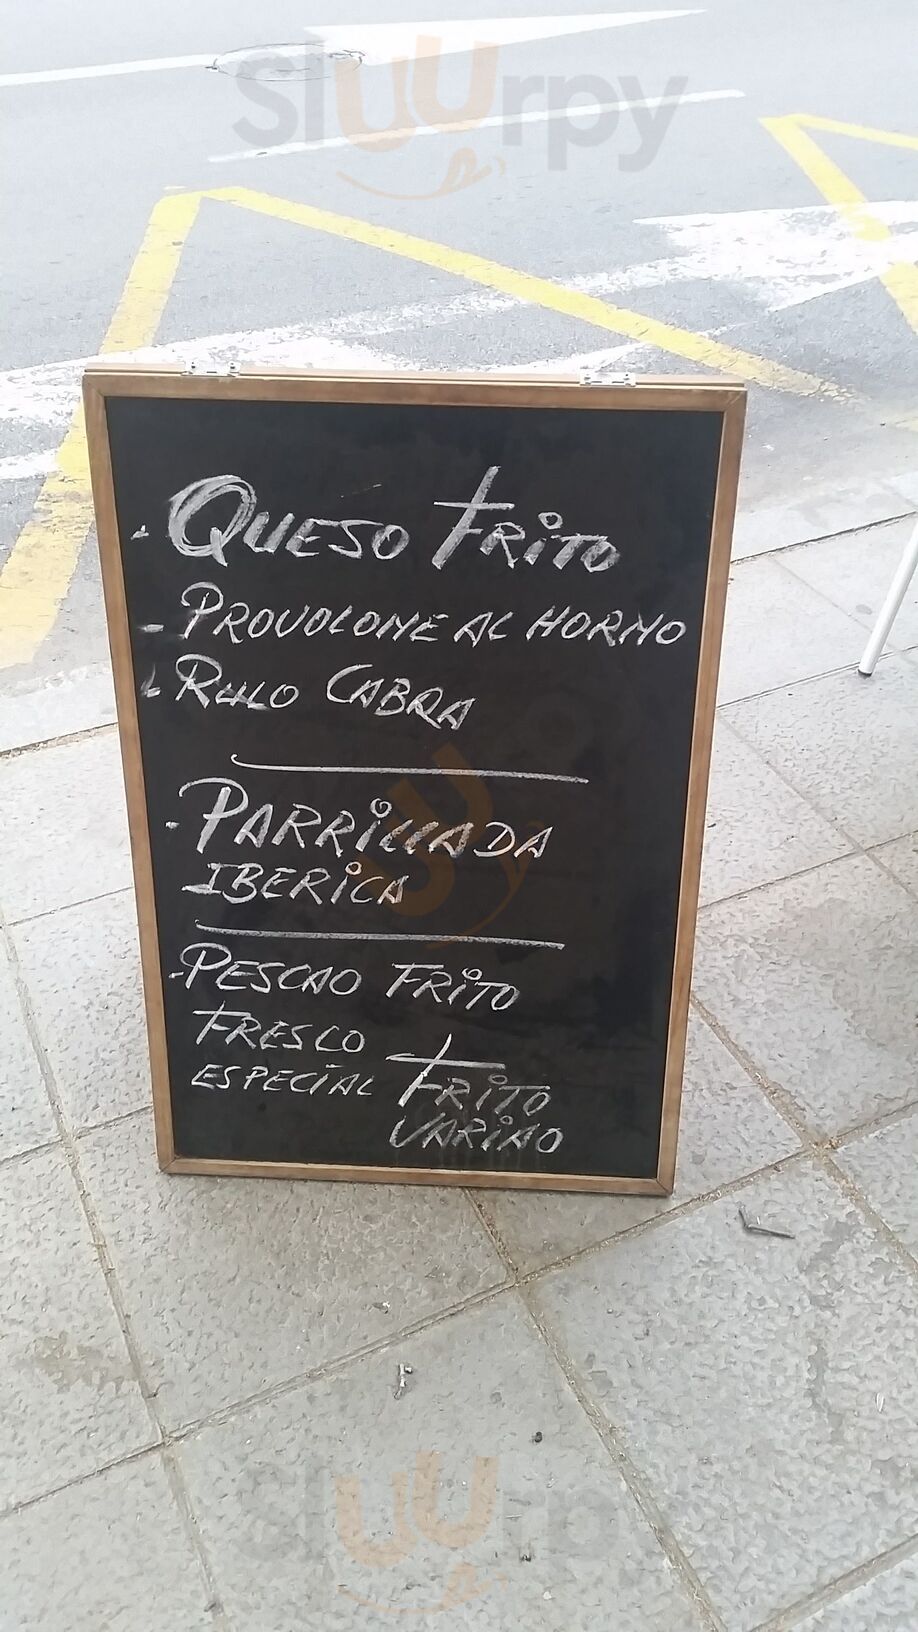 Sluurpy
- QUESO FRITO
- PROVOLONE AL HORNO
- RULO CABRA
- PARRILLADA
IBERICA
- PESCAO FRITO
FRESCO
ESPECIAL FRITO
VARIAO
Sluurpy